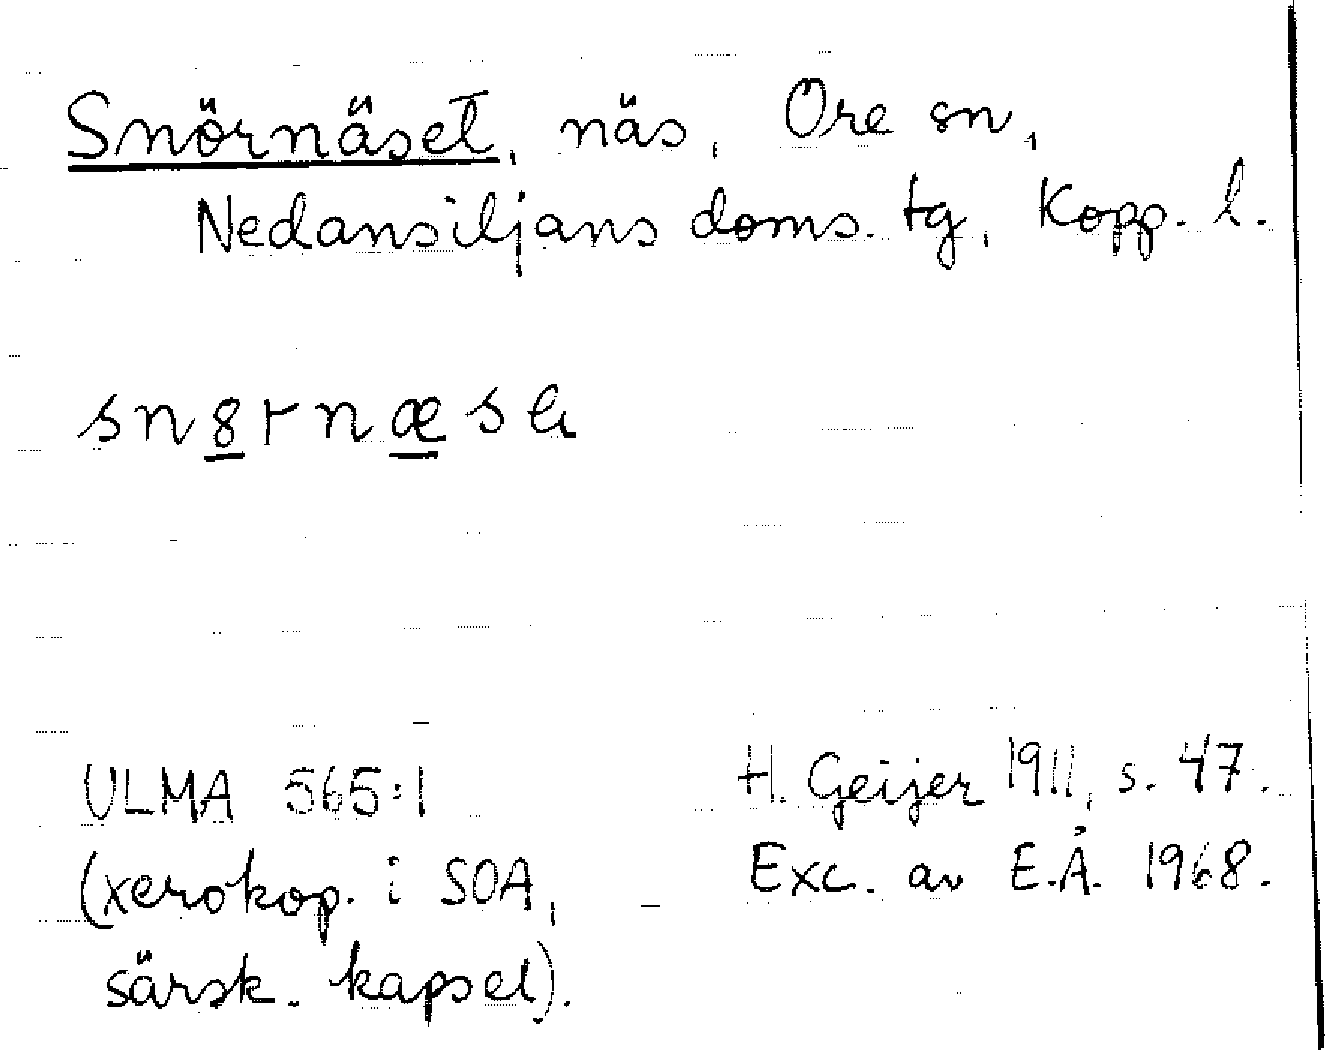 Snörnäset, näs, Ore sn,
Nedansiljans doms. tg, Kopp. l.
ULMA 565:1
(xerokop. i SOA,
särsk. kapsel).
H. Geijer 1911, s. 47.
Exc. av E.Å. 1968.